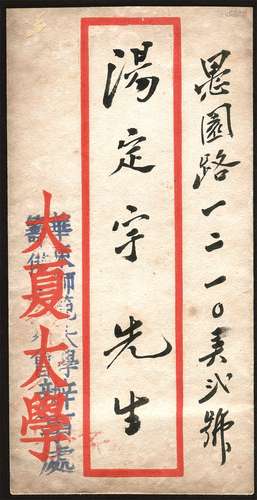 愚園路一二一〇弄弍號
湯定宇先生
大夏大學
華東師範大學
籌備
處